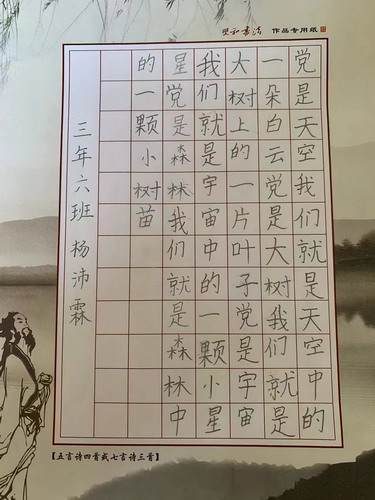 和书法 作品专用纸
党是天空我们就是天空中的
一朵白云党是大树我们就是
大树上的一片叶子党是宇宙
我们就是宇宙中的一颗小星
星党是森林我们就是森林中
的一颗小树苗
三年六班杨沛霖
【五言诗四首或七言诗三首】